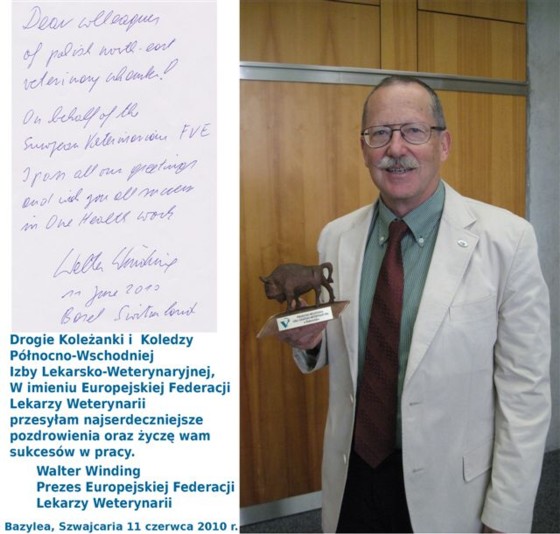 Dear colleagues
of polish north-east
veterinary chamber!
On behalf of the
European Veterinarians FVE
I pass all our greetings
and wish you all success
in One Health work
Walter Winding
11 june 2010
Basel Switzerland
Drogie Koleżanki i Koledzy
Północno-Wschodniej
Izby Lekarsko-Weterynaryjnej,
W imieniu Europejskiej Federacji
Lekarzy Weterynarii
przesyłam najserdeczniejsze
pozdrowienia oraz życzę wam
sukcesów w pracy.
Walter Winding
Prezes Europejskiej Federacji
Lekarzy Weterynarii
Bazylea, Szwajcaria 11 czerwca 2010 r.